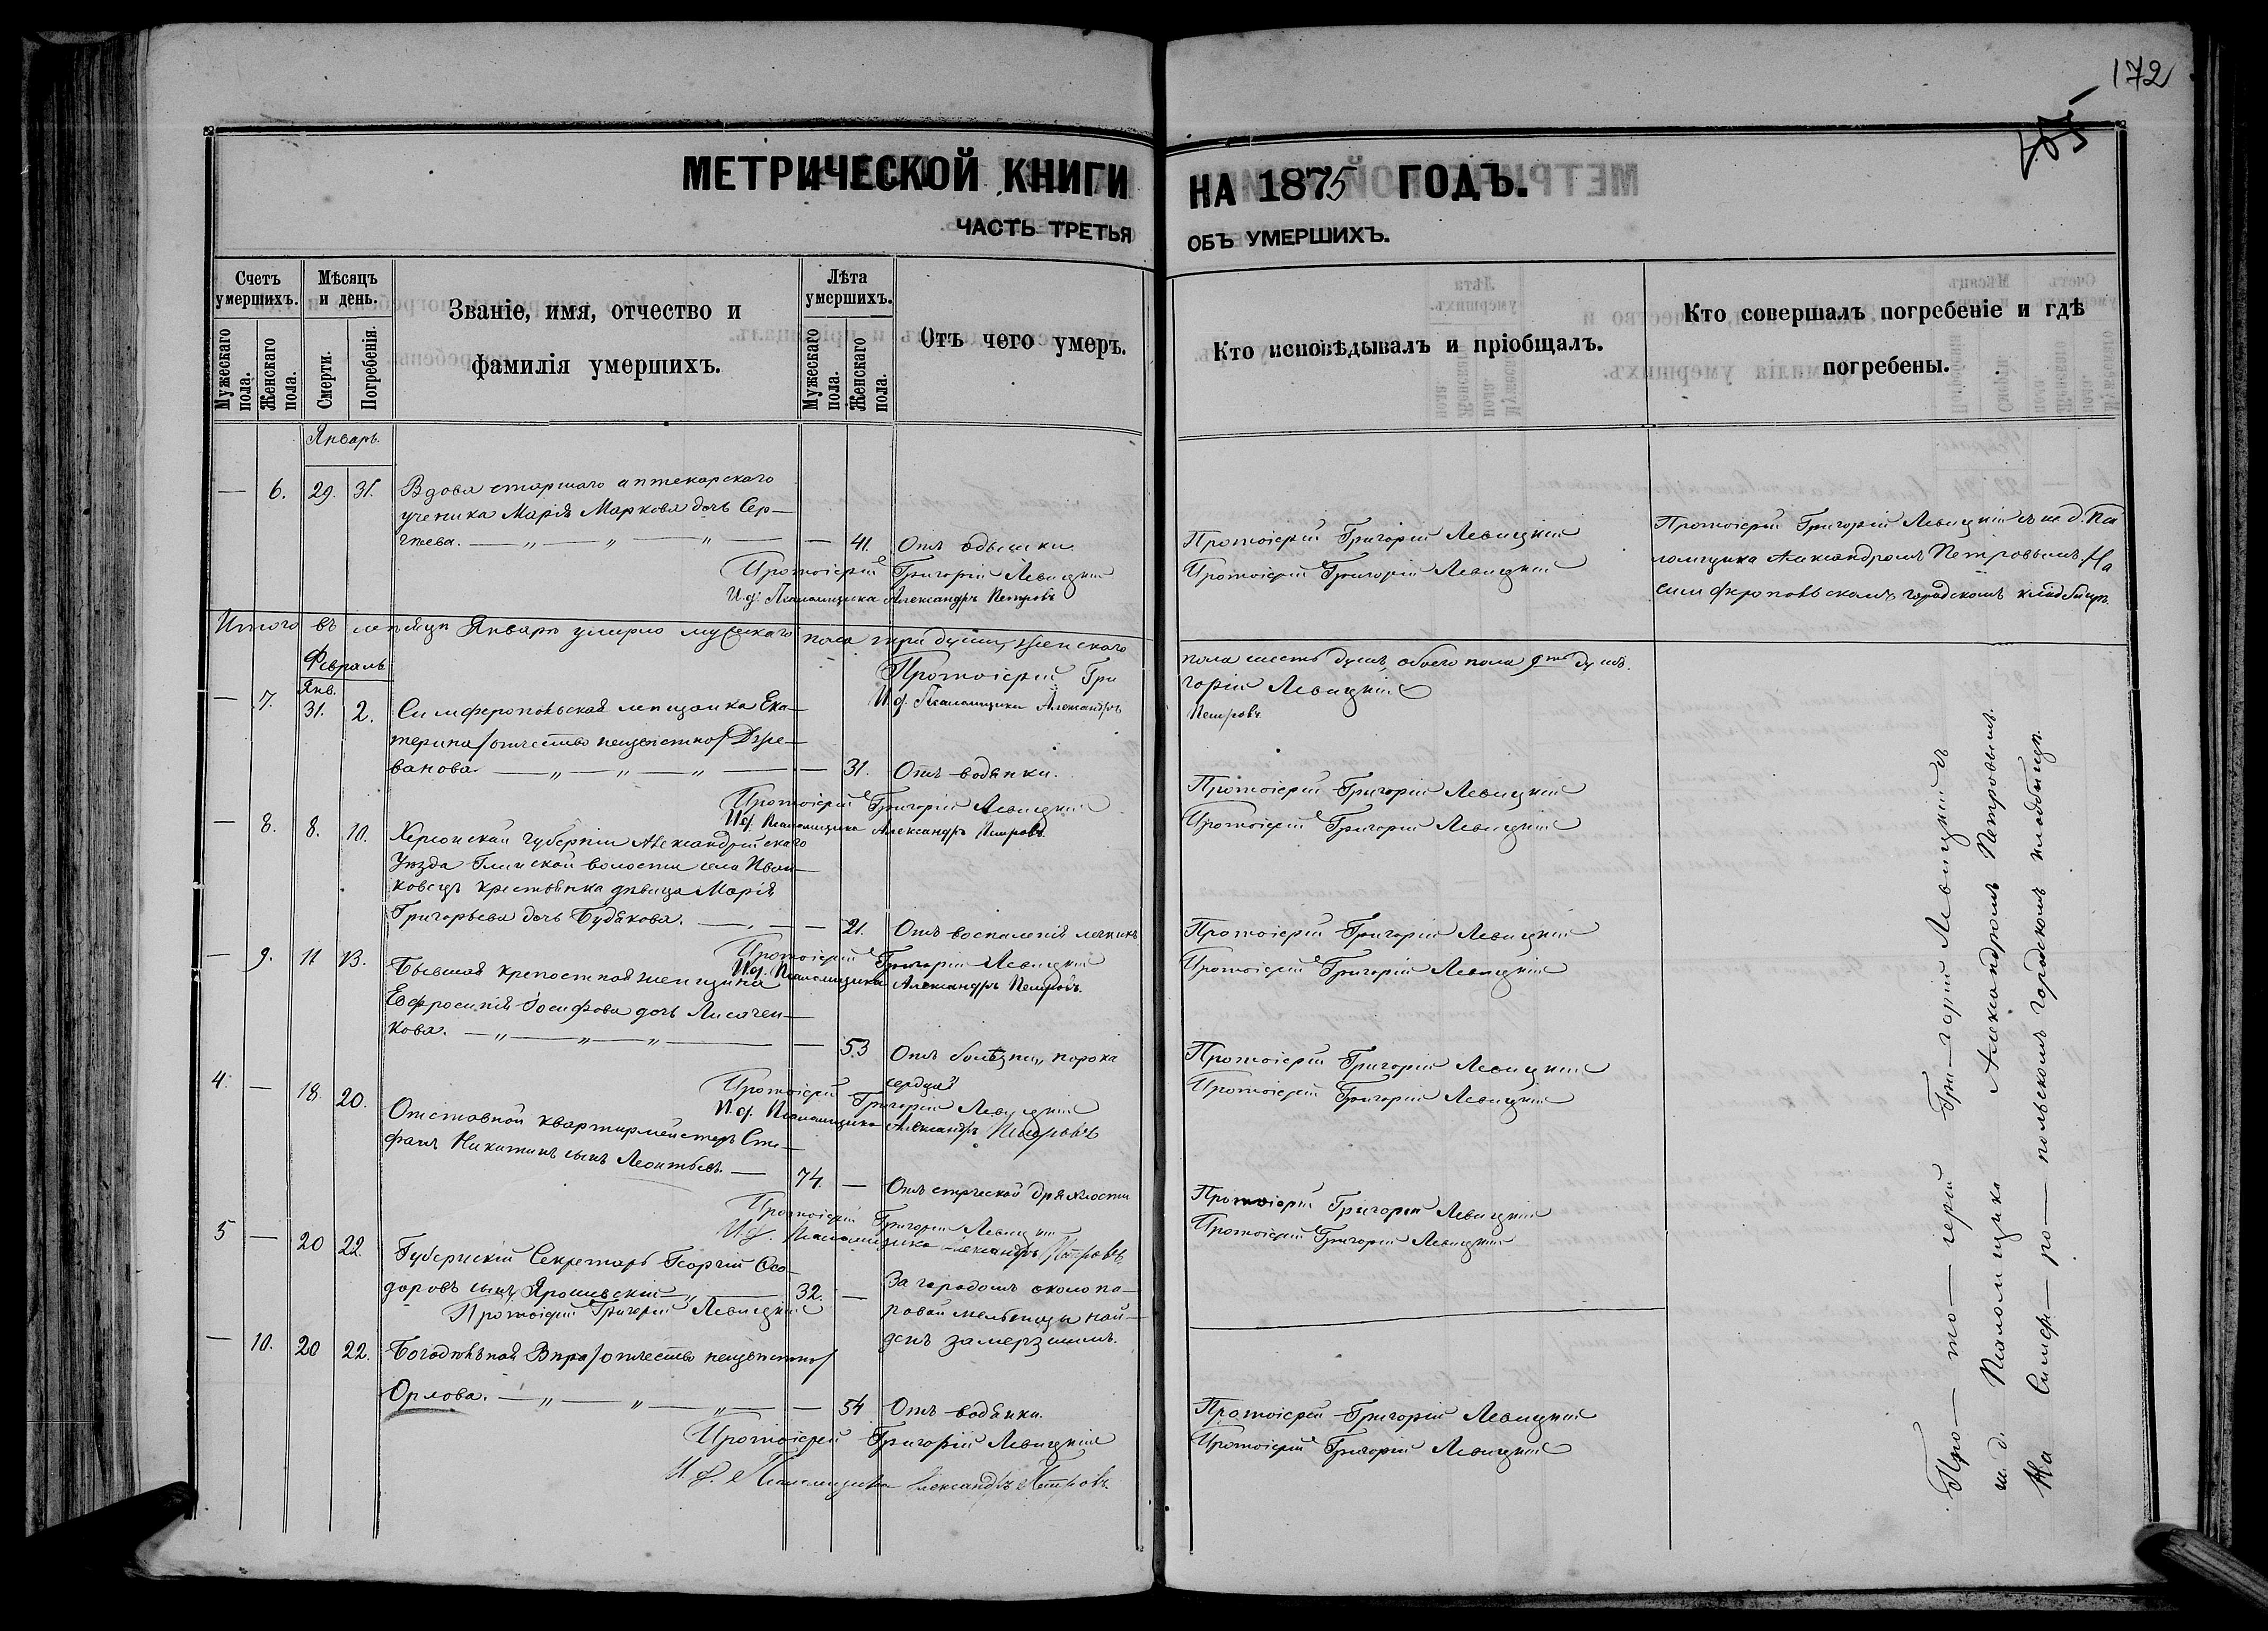 172
МЕТРИЧЕСКОЙ КНИГИ НА 1875 ГОДЪ.
ЧАСТЬ ТРЕТЬЯ ОБЪ УМЕРШИХЪ.
Счетъ умершихъ.
Мужескаго пола.
Женскаго пола.
Мѣсяцъ и день.
Смерти.
Погребенія.
Званіе, имя, отчество и
фамилія умершихъ.
Лѣта умершихъ.
Мужескаго пола.
Женскаго пола.
Отъ чего умеръ.
Кто исповѣдывалъ и пріобщалъ.
Кто совершалъ погребеніе и гдѣ
погребены.
Январь.
— 6. 29. 31. Вдова старшаго аптекарскаго
ученика Марія Маркова дочь Сер—
гѣева. — „ — „ — „ — — 41. Отъ одышки. Протоіерей Григорій Левицкій
Протоіерей Григорій Левицкій Протоіерей Григорій Левицкій
И.д. Псаломщика Александръ Петровъ
Протоіерей Григорій Левицкій съ и.д. Пса
ломщика Александромъ Петровымъ. На
симферопольскомъ городскомъ кладбищѣ.
Итого въ мѣсяцѣ Январѣ умерло мужскаго пола три души, женскаго
пола шесть душъ, обоего пола 9ть душъ.
Протоіерей Григорій Левицкій
И.д. Псаломщика Александръ Петровъ
Февраль
Янв.
— 7. 31. 2. Симферопольская мѣщанка Ека—
терина /отчество неизвѣстно/ Дере—
ванова. — „ — „ — „ — — 31. Отъ водянки. Протоіерей Григорій Левицкій
Протоіерей Григорій Левицкій Протоіерей Григорій Левицкій
И.д. Псаломщика Александръ Петровъ.
— 8. 8. 10. Херсонской губерніи Александрійскаго
Уѣзда Глинской волости села Иван—
ковецъ крестьянка дѣвица Марія
Григорьева дочь Будякова. — „ — — 21. Отъ воспаленія легкихъ Протоіерей Григорій Левицкій
Протоіерей Григорій Левицкій Протоіерей Григорій Левицкій
И.д. Псаломщика Александръ Петровъ.
— 9. 11 13. Бывшая крепостная женщина
Евфросинія Іосифова дочь Лисачен—
кова. — „ — „ — „ — — 53 Отъ болѣзни „порока
сердца" Протоіерей Григорій Левицкій
Протоіерей Григорій Левицкій Протоіерей Григорій Левицкій
И.д. Псаломщика Александръ Петровъ
4. — 18. 20. Отставной квартирмейстеръ Сте—
фанъ Никитинъ сынъ Леонтьевъ. — 74. — Отъ старческой дряхлости Протоіерей Григорій Левицкій
Протоіерей Григорій Левицкій Протоіерей Григорій Левицкій
И.д. Псаломщика Александръ Петровъ
5 — 20 22. Губернскій Секретарь Георгій Ѳео—
доровъ сынъ Ярошевскій — „ — 32. — За городомъ около па—
ровой мельницы най—
денъ замерзшимъ.
Протоіерей Григорій Левицкій
— 10. 20 22. Богодѣльная Вѣра /отчество неизвѣстно/
Орлова. — „ — „ — „ — — 54 Отъ водянки. Протоіерей Григорій Левицкій
Протоіерей Григорій Левицкій Протоіерей Григорій Левицкій
И.д. Псаломщика Александръ Петровъ.
Про—то—іерей Гри—горій Левицкій съ
и.д. Псаломщика Александромъ Петровымъ.
На Симфе—ро—польскомъ городскомъ кладбищѣ.